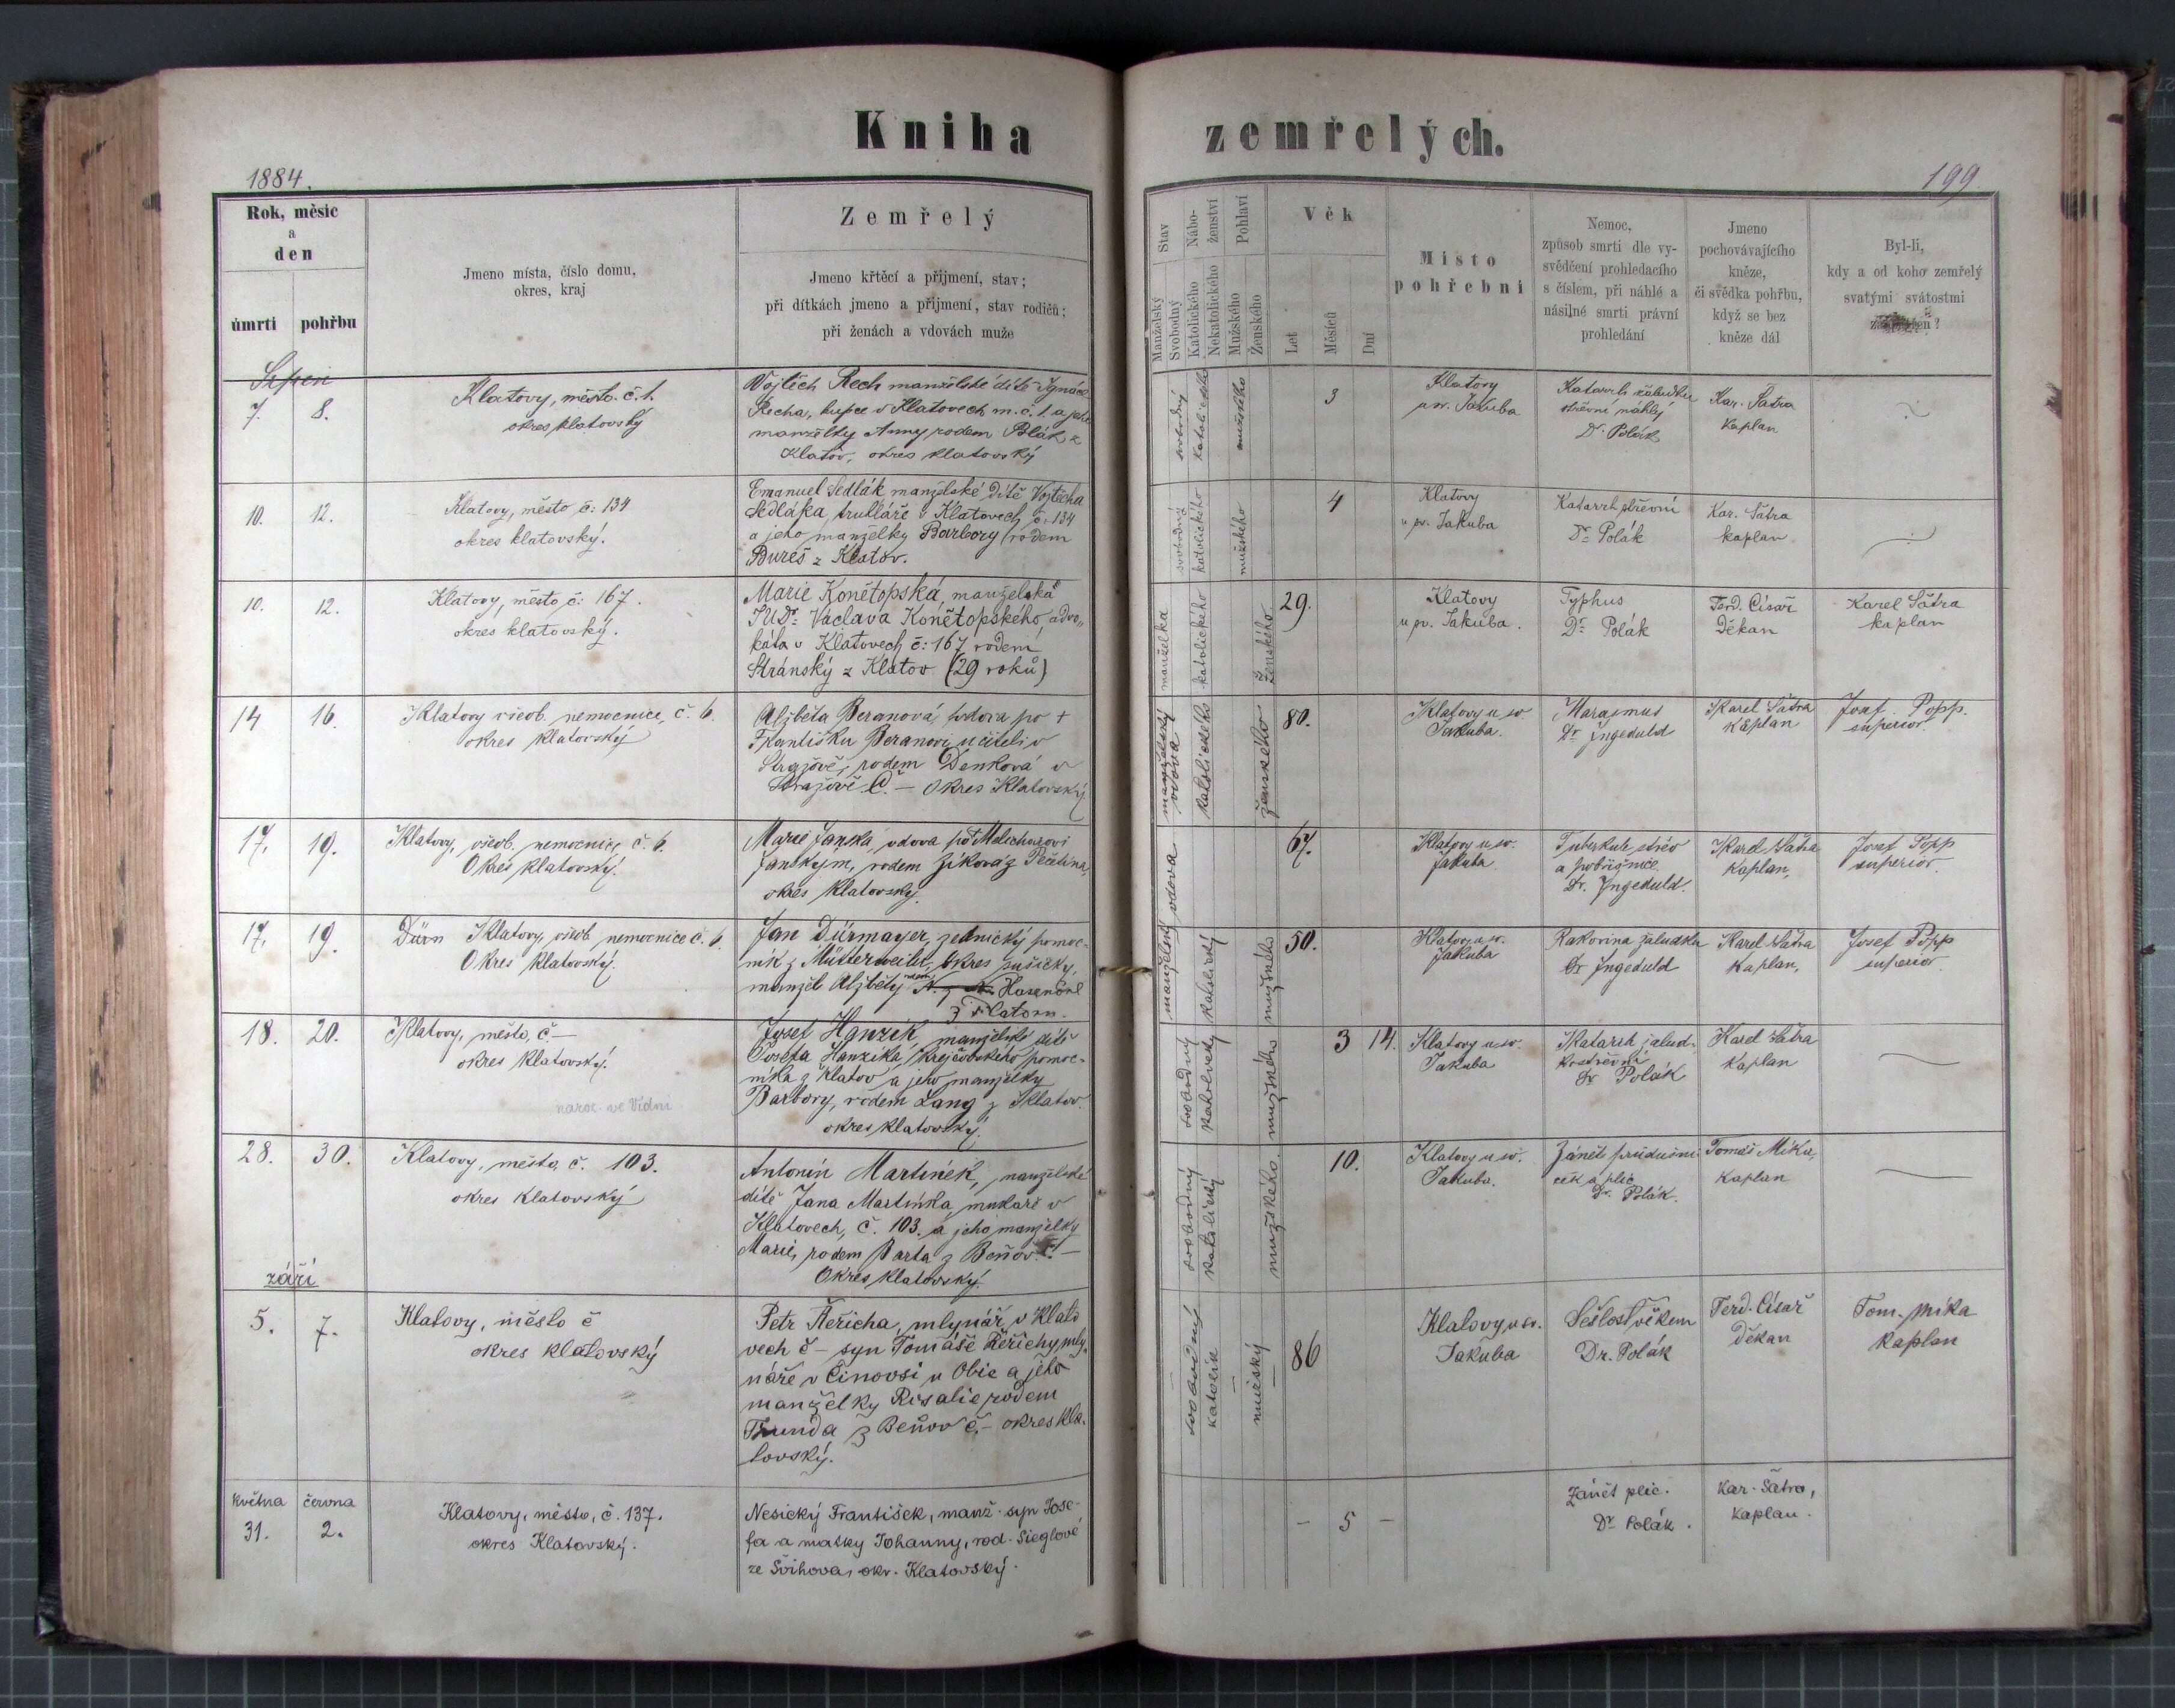 Kniha zemřelých.
1884.
199
Rok, měsíc
a
den
úmrti
pohřbu
Jmeno místa, číslo domu,
okres, kraj
Zemřelý
Jmeno křtěcí a přijmení, stav;
při dítkách jmeno a přijmení, stav rodičů;
při ženách a vdovách muže
Stav
Manželský
Svobodný
Nábo-
ženství
Katolického
Nekatolického
Pohlaví
Mužského
Ženského
Věk
Let
Měsíců
Dní
Místo
pohřební
Nemoc,
způsob smrti dle vy-
svědčení prohledacího
s číslem, při náhlé a
násilné smrti právní
prohledání
Jmeno
pochovávajícího
kněze,
či svědka pohřbu,
když se bez
kněze dál
Byl-li,
kdy a od koho zemřelý
svatými svátostmi
Srpen
7.
8.
Klatovy, město. č. 1.
okres klatovský
Vojtěch Rech manželské dítě Ignáce
Recha, kupce v Klatovech m. č. 1. a jeho
manželky Anny rodem Polák z
Klatov, okres klatovský
svobodný
katolického
mužského
3
Klatovy
u sv. Jakuba
Katarrh žaludku
střevní náhlý
Dr. Polák
Kar. Šátra
Kaplan
10.
12.
Klatovy, město č: 134
okres klatovský.
Emanuel Sedlák, manželské dítě Vojtěcha
Sedláka, truhláře v Klatovech č: 134
a jeho manželky Barbory rodem
Bureš z Klatov.
svobodný
katolického
mužského
4
Klatovy
u sv. Jakuba
Katarrh střevní
Dr. Polák
Kar. Šátra
kaplan
10.
12.
Klatovy, město č: 167.
okres klatovský.
Marie Konětopská, manželka
JUDr. Václava Konětopského, advo-
káta v Klatovech č: 167 rodem
Stránský z Klatov (29 roků)
manželka
katolického
ženského
29.
Klatovy
u sv. Jakuba.
Typhus
Dr. Polák
Ferd. Císař
Děkan
Karel Šátra
kaplan
14
16.
Klatovy všeob. nemocnice, č. 6.
okres klatovský
Alžběta Beranová, vdova po +
Františku Beranovi učiteli v
Strajově, rodem Denková v
Strajově č. – Okres Klatovský
manželský
vdova
katolického
ženského
80.
Klatovy u sv
Jakuba.
Marasmus
Dr. Ingeduld
Karel Šátra
Kaplan
Josef Popp.
superior
17.
19.
Klatovy, všeob. nemocnice č. 6.
Okres klatovský.
Marie Janská, vdova po Melicharovi
Janským, rodem Zíková z Pečetína,
okres klatovský.
vdova
67.
Klatovy u sv.
Jakuba
Tuberkul. střev
a pobřišnice
Dr. Ingeduld.
Karel Šátra
Kaplan,
Josef Popp
superior.
17.
19.
Dürn
Klatovy, všeob. nemocnice č. 6.
Okres klatovský.
Jan Dürmayer, zednický pomoc-
ník z Mütterweilu, okres sušický,
manžel Alžběty rodem Hasenöhl
z Flatorn.
manželský
katolický
mužského
50.
Klatovy u sv.
Jakuba
Rakovina žaludku
Dr Ingeduld
Karel Šátra
Kaplan,
Josef Popp
superior.
18.
20.
Klatovy, město, č. –
okres klatovský.
naroz. ve Vídni
Josef Hanzík, manželské dítě
Josefa Hanzíka, krejčovského pomoc-
níka z Klatov a jeho manželky
Barbory, rodem Lang z Klatov.
okres klatovský.
svobodný
katolický
mužského
3
14.
Klatovy u sv.
Jakuba
Katarrh žalud-
kostřevní
Dr Polák
Karel Šátra
Kaplan
28.
30.
Klatovy, město, č. 103.
okres klatovský
Antonín Martínek, manželské
dítě Jana Martínka, mukaře v
Klatovech, č. 103. a jeho manželky
Marie, rodem Barta z Beňov č. –
Okres klatovský.
svobodný
katolický
mužského
10.
Klatovy u sv.
Jakuba.
Zánět průdušni-
ček a plic
Dr. Polák.
Tomáš Mika,
Kaplan
září
5.
7.
Klatovy, město č
okres klatovský
Petr Řeřicha, mlynář v Klato
vech č – syn Tomáše Řeřichy, mly-
náře v Činovsi u Obic a jeho
manželky Rosalie rodem
Trunda z Beňov č. – okres kla-
tovský.
svobodný
katolík
mužský
86
Klatovy u sv.
Jakuba
Sešlost věkem
Dr. Polák
Ferd. Císař
Děkan
Tom. Mika
Kaplan
května
června
31.
2.
Klatovy, město, č. 137.
okres Klatovský.
Nesický František, manž. syn Jose-
fa a matky Johanny, rod. Sieglové
ze Švihova, okr. Klatovský.
– 5 –
Zánět plic.
Dr Polák.
Kar. Šátra,
Kaplan.